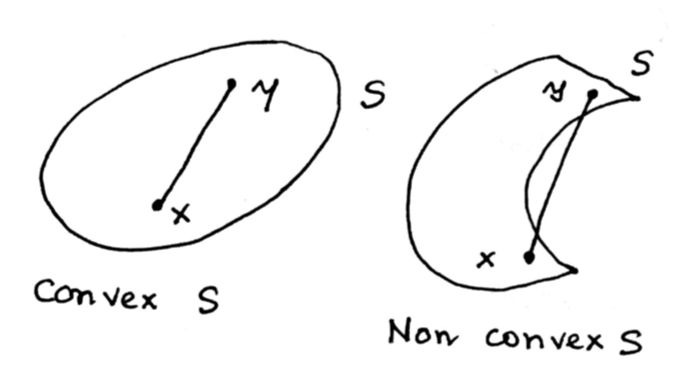 y
S
x
Convex S
S
y
x
Non convex S